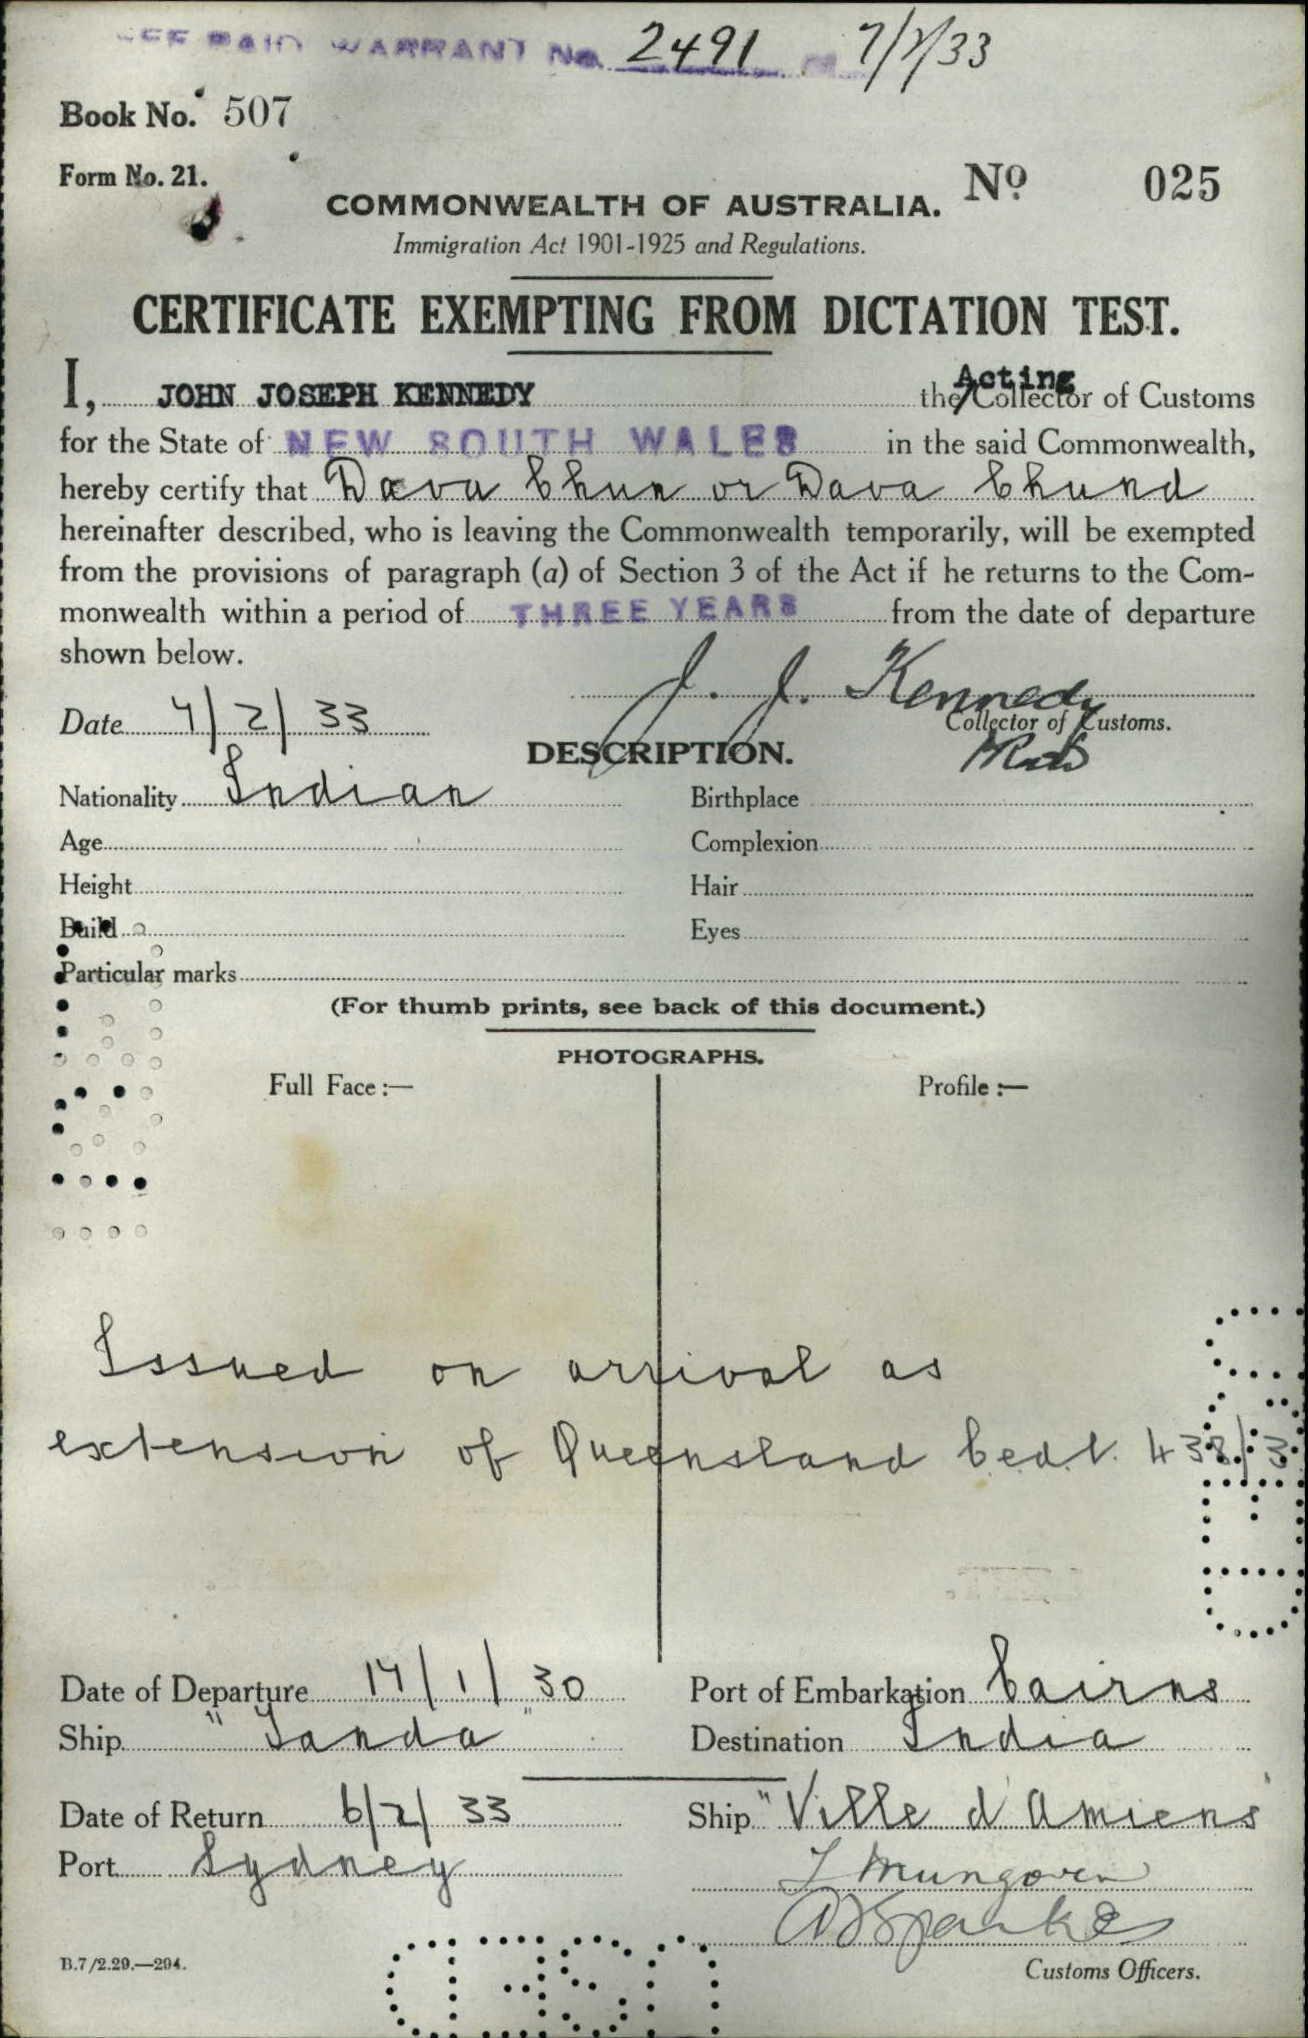 FEE PAID WARRANT No. 2491 7/2/33
Book No. 507
Form No. 21.
No 025
COMMONWEALTH OF AUSTRALIA.
Immigration Act 1901-1925 and Regulations.
CERTIFICATE EXEMPTING FROM DICTATION TEST.
I, JOHN JOSEPH KENNEDY the/Acting Collector of Customs
for the State of NEW SOUTH WALES in the said Commonwealth,
hereby certify that Dava Chun or Dava Chund
hereinafter described, who is leaving the Commonwealth temporarily, will be exempted
from the provisions of paragraph (a) of Section 3 of the Act if he returns to the Com-
monwealth within a period of THREE YEARS from the date of departure
shown below.
J. J. Kennedy
Date 7/2/33
Collector of Customs.
DESCRIPTION.
Nationality Indian
Birthplace
Age
Complexion
Height
Hair
Build
Eyes
Particular marks
(For thumb prints, see back of this document.)
PHOTOGRAPHS.
Full Face :—
Profile :—
Issued on arrival as
extension of Queensland Cedt. 438/3
Date of Departure 14/1/30
Port of Embarkation Cairns
Ship "Tanda"
Destination India
Date of Return 6/2/33
Ship "Ville d'Amiens"
Port Sydney
T Mungoven
Sparkes
B.7/2.29.—294.
Customs Officers.